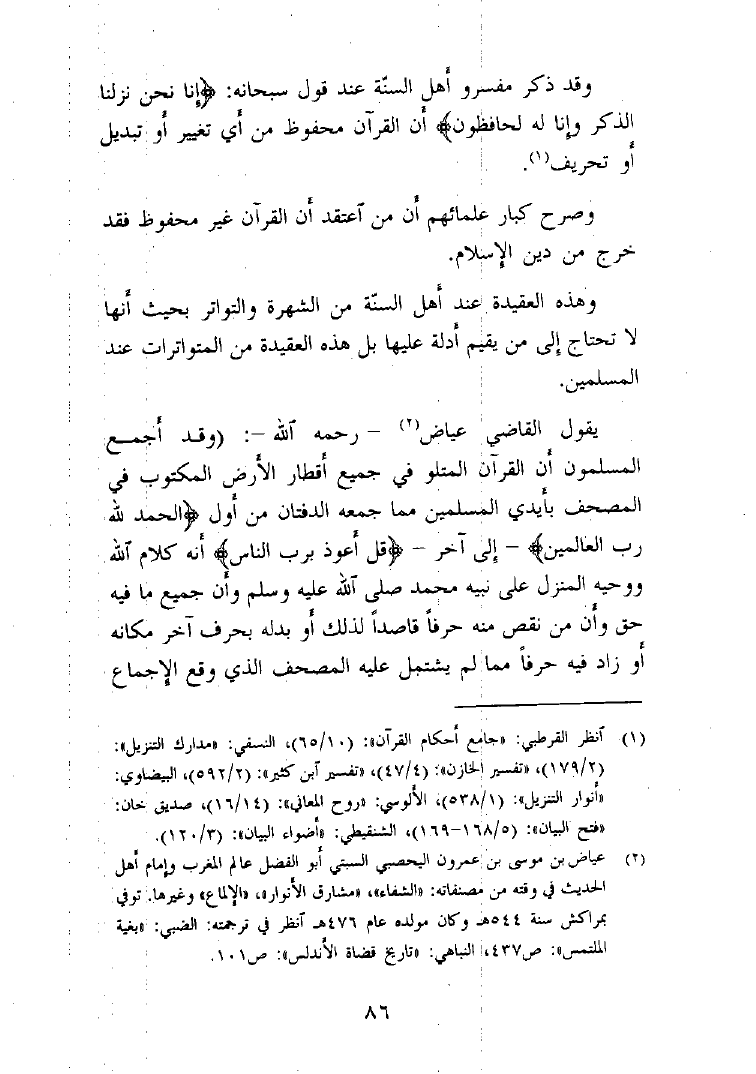 وقد ذكر مفسرو أهل السنّة عند قول سبحانه: ﴿إنا نحن نزلنا
الذكر وإنا له لحافظون﴾ أن القرآن محفوظ من أي تغيير أو تبديل
أو تحريف(١).
وصرح كبار علمائهم أن من ٱعتقد أن القرآن غير محفوظ فقد
خرج من دين الإسلام.
وهذه العقيدة عند أهل السنّة من الشهرة والتواتر بحيث أنها
لا تحتاج إلى من يقيم أدلة عليها بل هذه العقيدة من المتواترات عند
المسلمين.
يقول القاضي عياض(٢) – رحمه ٱلله –: (وقد أجمع
المسلمون أن القرآن المتلو في جميع أقطار الأرض المكتوب في
المصحف بأيدي المسلمين مما جمعه الدفتان من أول ﴿الحمد لله
رب العالمين﴾ – إلى آخر – ﴿قل أعوذ برب الناس﴾ أنه كلام ٱلله
ووحيه المنزل على نبيه محمد صلى ٱلله عليه وسلم وأن جميع ما فيه
حق وأن من نقص منه حرفاً قاصداً لذلك أو بدله بحرف آخر مكانه
أو زاد فيه حرفاً مما لم يشتمل عليه المصحف الذي وقع الإجماع
(١) ٱنظر القرطبي: «جامع أحكام القرآن»: (٦٥/١٠)، النسفي: «مدارك التنزيل»:
(١٧٩/٢)، «تفسير الخازن»: (٤٧/٤)، «تفسير ٱبن كثير»: (٥٩٢/٢)، البيضاوي:
«أنوار التنزيل»: (٥٣٨/١)، الألوسي: «روح المعاني»: (١٦/١٤)، صديق خان:
«فتح البيان»: (١٦٨/٥–١٦٩)، الشنقيطي: «أضواء البيان»: (١٢٠/٣).
(٢) عياض بن موسى بن عمرون اليحصبي السبتي أبو الفضل عالم المغرب وإمام أهل
الحديث في وقته من مصنفاته: «الشفاء»، «مشارق الأنوار»، «الإلماع» وغيرها. توفي
بمراكش سنة ٥٤٤هـ وكان مولده عام ٤٧٦هـ ٱنظر في ترجمته: الضبي: «بغية
الملتمس»: ص٤٣٧، النباهي: «تاريخ قضاة الأندلس»: ص١٠١.
٨٦